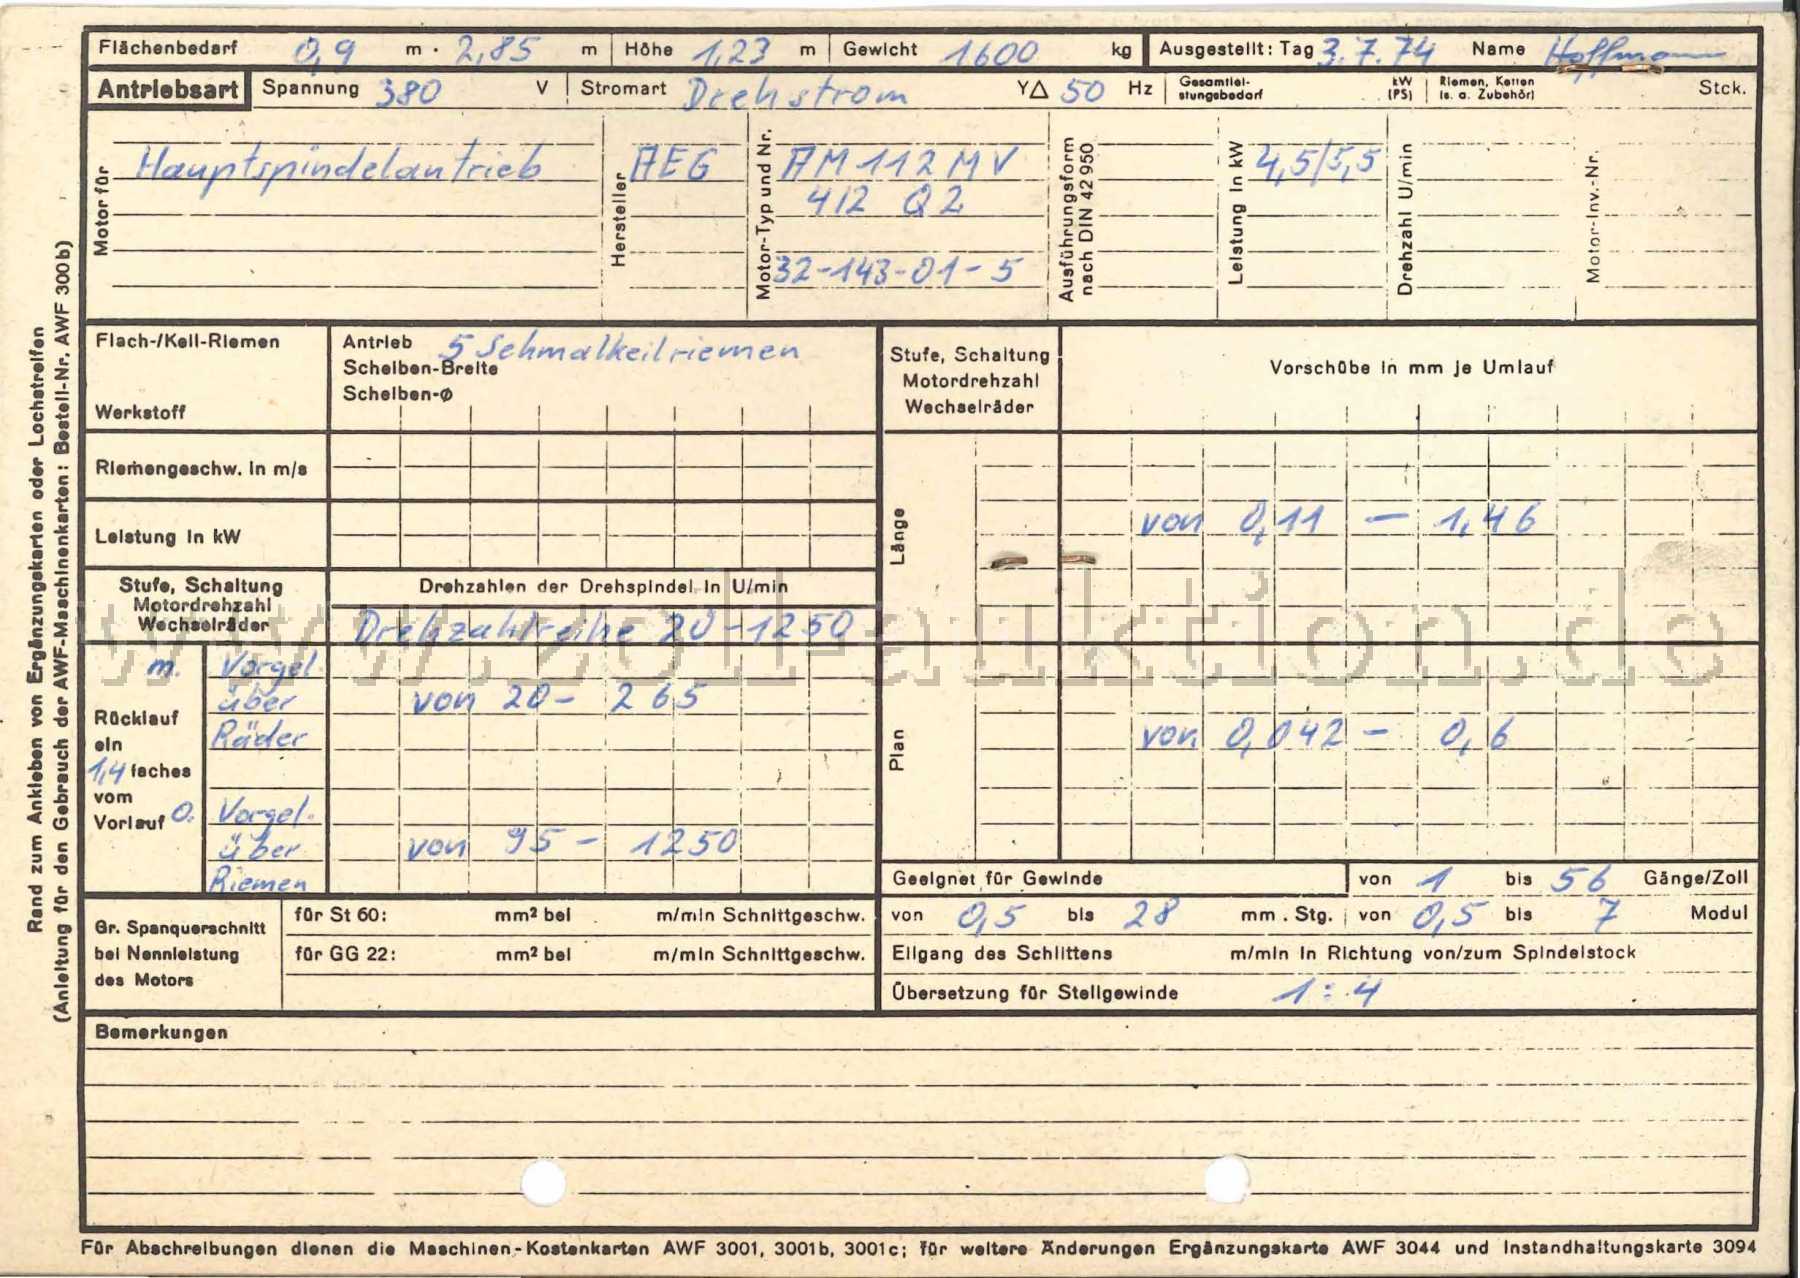 Flächenbedarf 0,9 m · 2,85 m Höhe 1,23 m Gewicht 1600 kg Ausgestellt: Tag 3.7.74 Name Hoffmann
Antriebsart Spannung 380 V Stromart Drehstrom Y△ 50 Hz Gesamtleistungsbedarf kW (PS) Riemen, Ketten (s. a. Zubehör) Stck.
Motor für Hauptspindelantrieb
Hersteller AEG
Motor-Typ und Nr. AM 112 MV
4/2 Q2
32-143-01-5
Ausführungsform nach DIN 42 950
Leistung in kW 4,5/5,5
Drehzahl U/min
Motor-Inv.-Nr.
Flach-/Keil-Riemen
Werkstoff
Antrieb 5 Schmalkeilriemen
Scheiben-Breite
Scheiben-ø
Riemengeschw. in m/s
Leistung in kW
Stufe, Schaltung
Motordrehzahl
Wechselräder
Drehzahlen der Drehspindel in U/min
Drehzahlreihe 20-1250
Rücklauf
ein
1,4 faches
vom
Vorlauf
m. Vorgel.
über
Räder
von 20 - 265
O. Vorgel.
über
Riemen
von 95 - 1250
Gr. Spanquerschnitt
bei Nennleistung
des Motors
für St 60: mm² bei m/min Schnittgeschw.
für GG 22: mm² bei m/min Schnittgeschw.
Stufe, Schaltung
Motordrehzahl
Wechselräder
Vorschübe in mm je Umlauf
Länge
von 0,11 - 1,46
Plan
von 0,042 - 0,6
Geeignet für Gewinde von 1 bis 56 Gänge/Zoll
von 0,5 bis 28 mm . Stg. von 0,5 bis 7 Modul
Eilgang des Schlittens m/min in Richtung von/zum Spindelstock
Übersetzung für Steilgewinde 1 : 4
Bemerkungen
Für Abschreibungen dienen die Maschinen-Kostenkarten AWF 3001, 3001b, 3001c; für weitere Änderungen Ergänzungskarte AWF 3044 und Instandhaltungskarte 3094
Rand zum Ankleben von Ergänzungskarten oder Lochstreifen
(Anleitung für den Gebrauch der AWF-Maschinenkarten: Bestell-Nr. AWF 300 b)
www.zoll-auktion.de